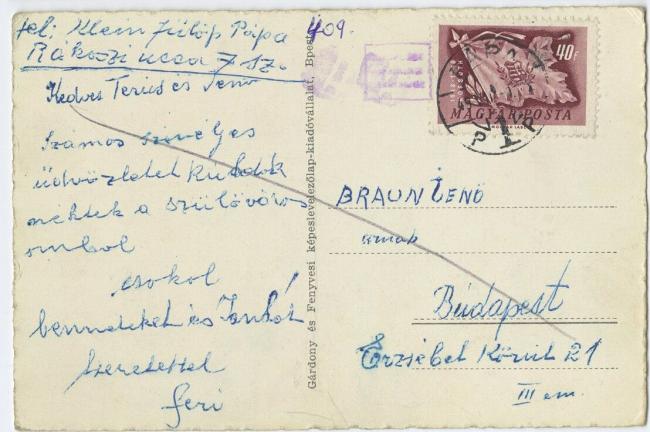 fel: Klein Fülöp Pápa
Rákoczi ucca 7 sz.
Kedves Terus és Jenő
Számos szivéljes
üdvözletet kuldök
néktek a szülőváros
omból
csokol
benneteket és Jankót
szeretettel
feri
Gárdony és Fenyvesi képeslevelezőlap-kiadóvállalat, Bpest
409.
40F
MAGYAR POSTA
BRAUN JENŐ
urnak
Budapest
Erzsébet Körut 21
III em.